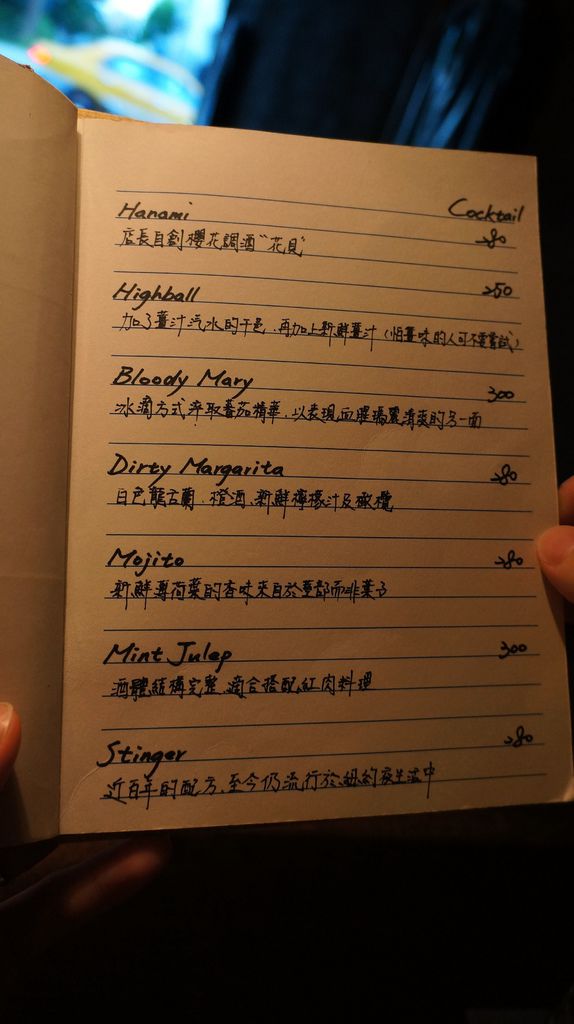 Cocktail
Hanami 280
店長自創櫻花調酒“花見”
Highball 250
加了薑汁汽水的干邑、再加上新鮮薑汁(怕薑味的人可不要嘗試)
Bloody Mary 300
冰滴方式萃取番茄精華、以表現血腥瑪麗清爽的另一面
Dirty Margarita 280
白色龍舌蘭、橙酒、新鮮檸檬汁及橄欖
Mojito 280
新鮮薄荷葉的香味來自於莖部而非葉子
Mint Julep 300
酒體結構完整、適合搭配紅肉料理
Stinger 280
近百年的配方、至今仍流行於紐約夜生活中